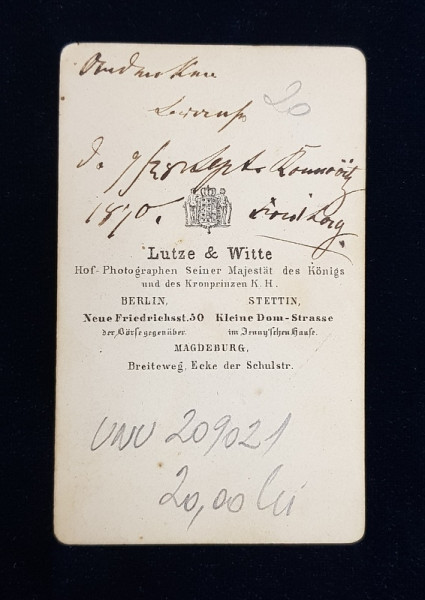 Andenken
20
1870.
Lutze & Witte
Hof-Photographen Seiner Majestät des Königs
und des Kronprinzen K. H.
BERLIN, STETTIN,
Neue Friedrichsst. 50 Kleine Dom-Strasse
der Börse gegenüber im Jenny'schen Hause.
MAGDEBURG,
Breiteweg, Ecke der Schulstr.
UNU 209021
20,00 lei